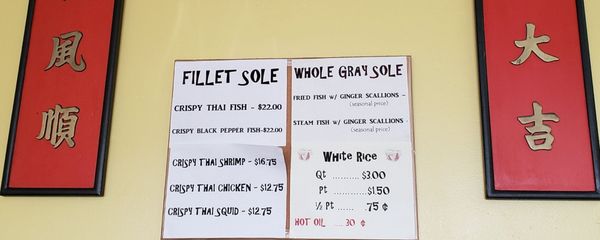 風
順
FILLET SOLE
CRISPY THAI FISH - $22.00
CRISPY BLACK PEPPER FISH-$22.00
CRISPY THAI SHRIMP - $16.75
CRISPY THAI CHICKEN - $12.75
CRISPY THAI SQUID - $12.75
WHOLE GRAY SOLE
FRIED FISH W/ GINGER SCALLIONS -
(seasonal price)
STEAM FISH W/ GINGER SCALLIONS -
(seasonal price)
White Rice
Qt ........... $3.00
Pt ........... $1.50
½ Pt ...... .75 ¢
HOT OIL .... 30 ¢
大
吉